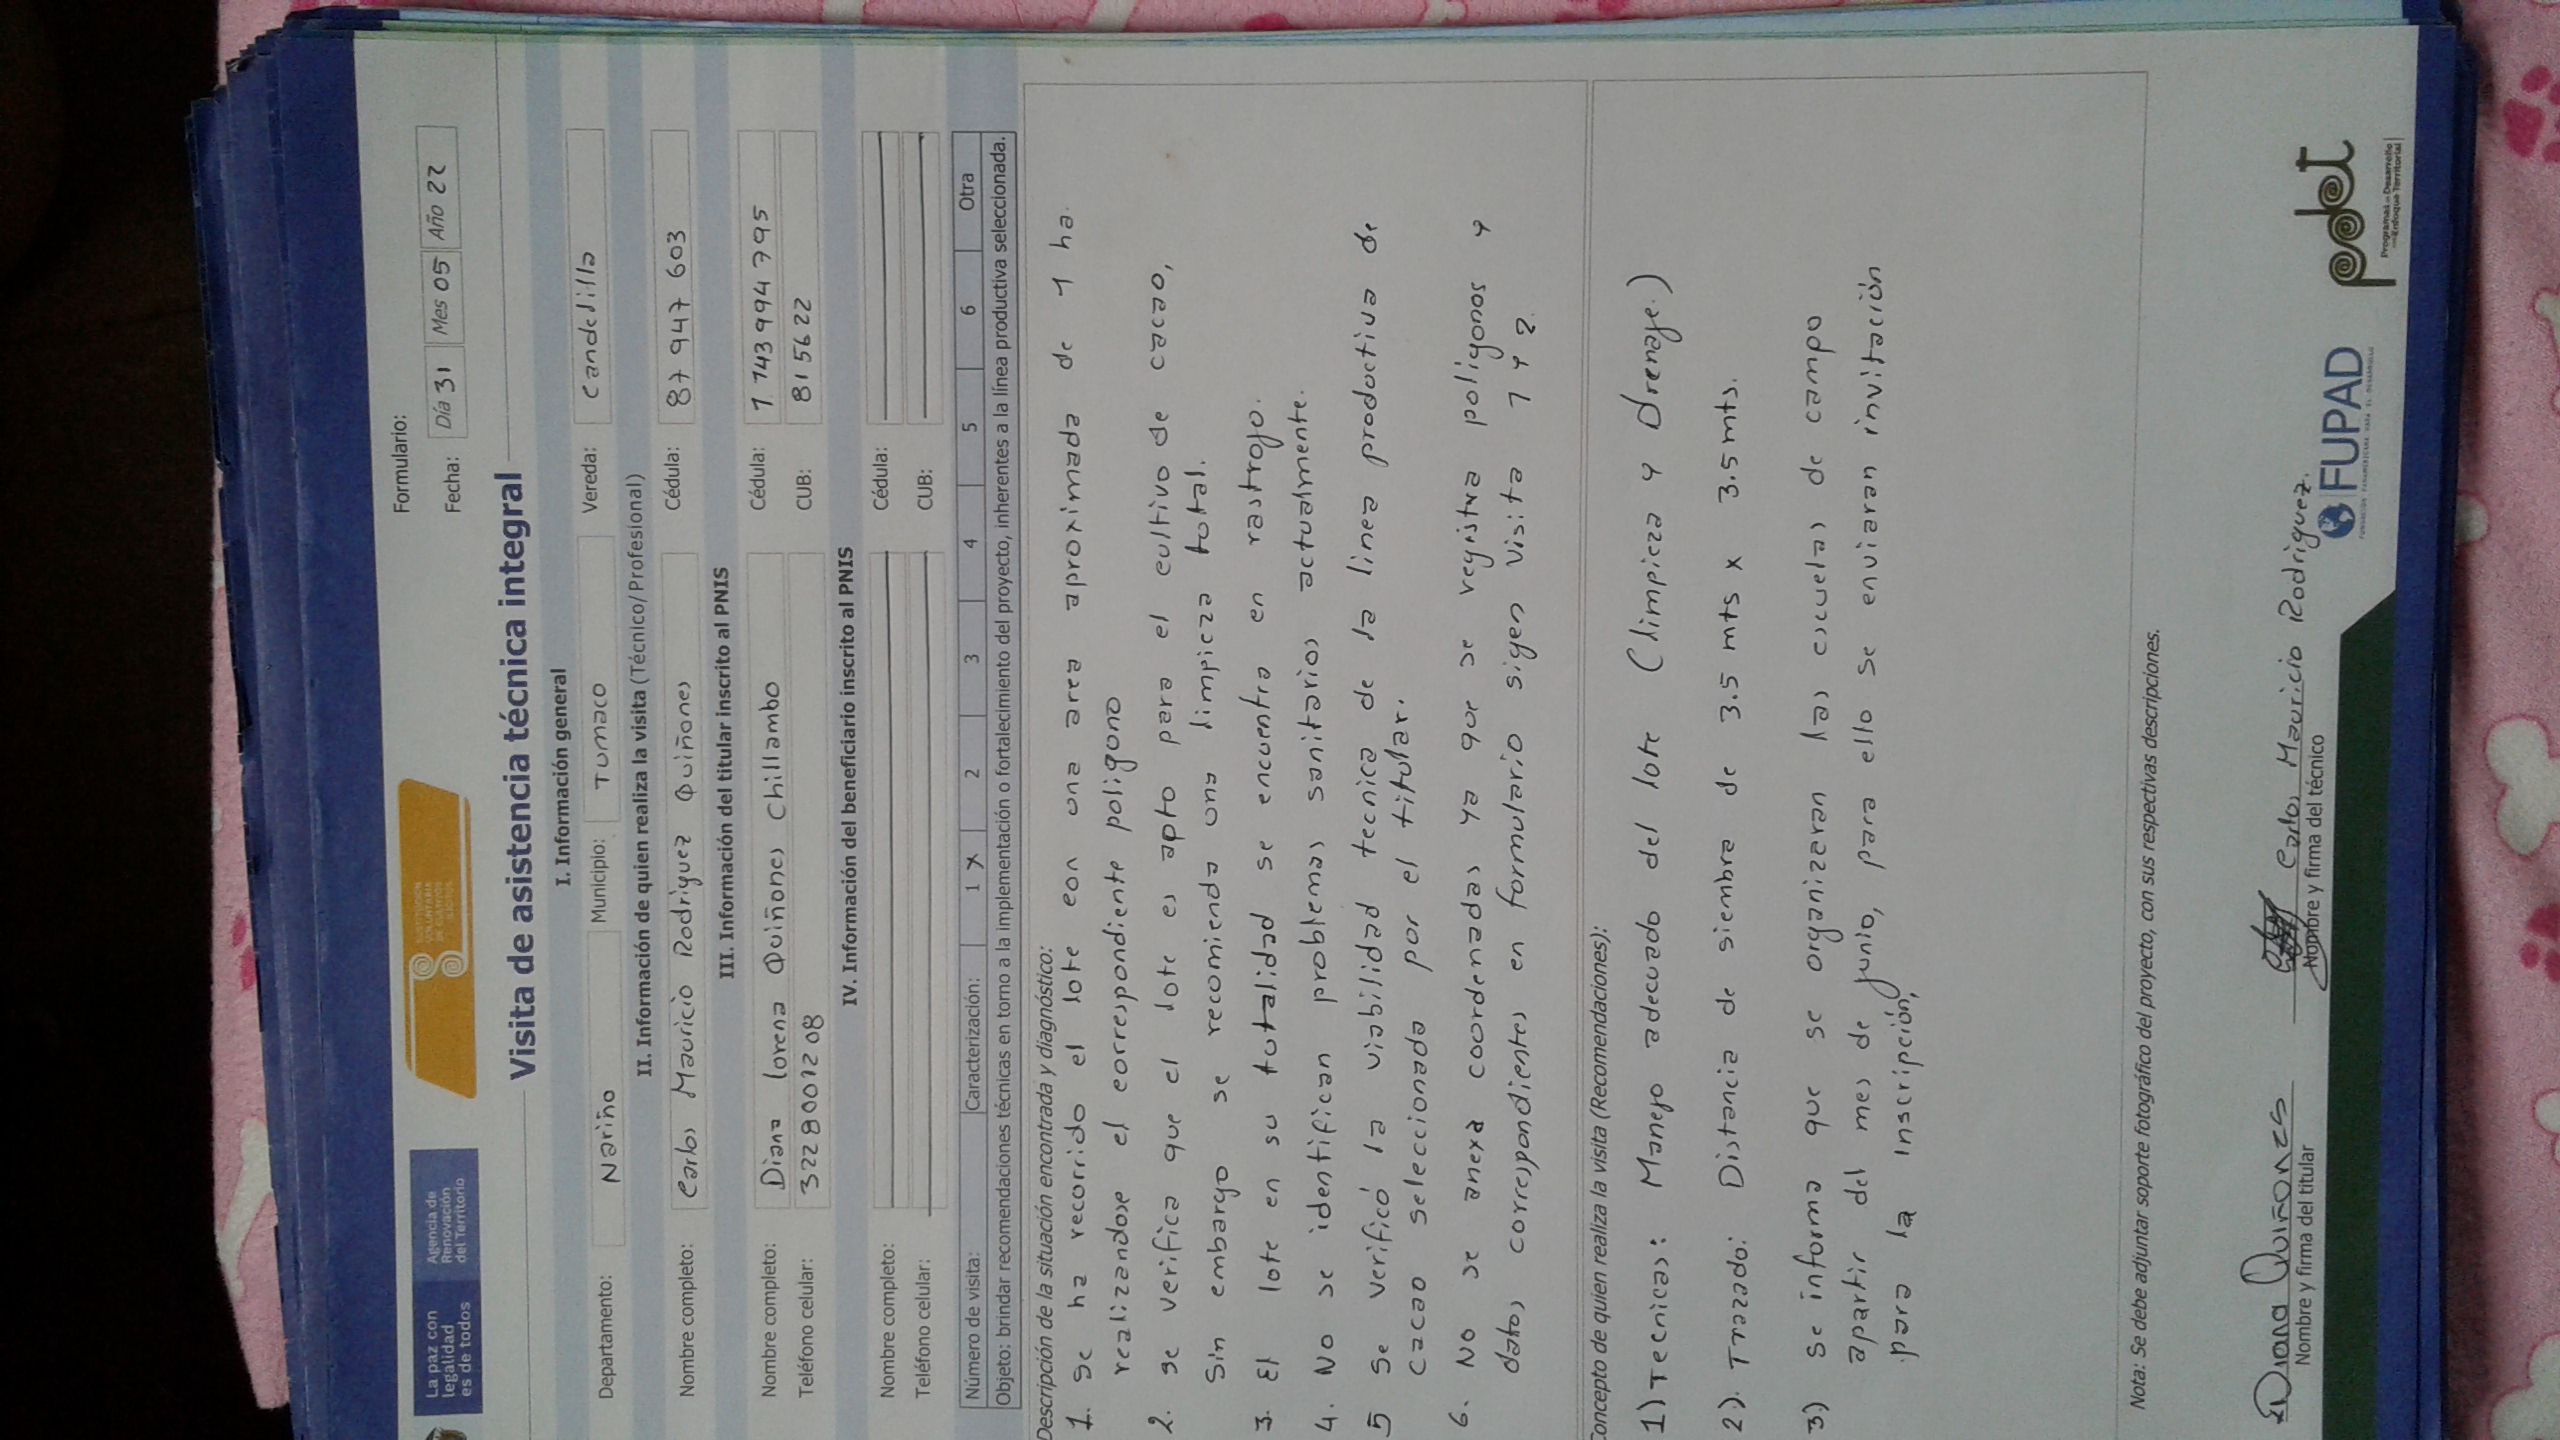 La paz con
legalidad
es de todos
Agencia de
Renovación
del Territorio
SUSTITUCIÓN
VOLUNTARIA
DE CULTIVOS
ILÍCITOS
Formulario:
Fecha: Día 31 Mes 05 Año 22
Visita de asistencia técnica integral
I. Información general
Departamento: Nariño Municipio: Tumaco Vereda: Candelilla
II. Información de quien realiza la visita (Técnico/ Profesional)
Nombre completo: Carlos Mauricio Rodriguez Quiñones Cédula: 87 947 603
III. Información del titular inscrito al PNIS
Nombre completo: Diana lorena Quiñones Chillambo Cédula: 1 143 994 795
Teléfono celular: 3228001208 CUB: 815622
IV. Información del beneficiario inscrito al PNIS
Nombre completo: Cédula:
Teléfono celular: CUB:
Número de visita: Caracterización: 1 X 2 3 4 5 6 Otra
Objeto: brindar recomendaciones técnicas en torno a la implementación o fortalecimiento del proyecto, inherentes a la línea productiva seleccionada.
Descripción de la situación encontrada y diagnóstico:
1. Se ha recorrido el lote con una area aproximada de 1 ha.
realizandose el correspondiente poligono
2. se verifica que el lote es apto para el cultivo de cacao,
Sin embargo se recomienda una limpieza total.
3. El lote en su totalidad se encuentra en rastrojo.
4. No se identifican problemas sanitarios actualmente.
5 Se verificó la viabilidad tecnica de la linea productiva de
cacao seleccionada por el titular.
6. No se anexa coordenadas ya que se registra poligonos y
datos correspondientes en formulario sigen visita 1 y 2.
Concepto de quien realiza la visita (Recomendaciones):
1) Tecnicas: Manejo adecuado del lote (limpieza y Drenaje.)
2). Trazado: Distancia de siembra de 3.5 mts x 3.5 mts.
3) Se informa que se organizaran las escuelas de campo
apartir del mes de junio, para ello se enviaran invitación
para la inscripción,
Nota: Se debe adjuntar soporte fotográfico del proyecto, con sus respectivas descripciones.
Diana Quiñones
Nombre y firma del titular
Carlos Mauricio Rodriguez.
Nombre y firma del técnico
FUPAD
FUNDACIÓN PANAMERICANA PARA EL DESARROLLO
pdet
Programas de Desarrollo
con Enfoque Territorial